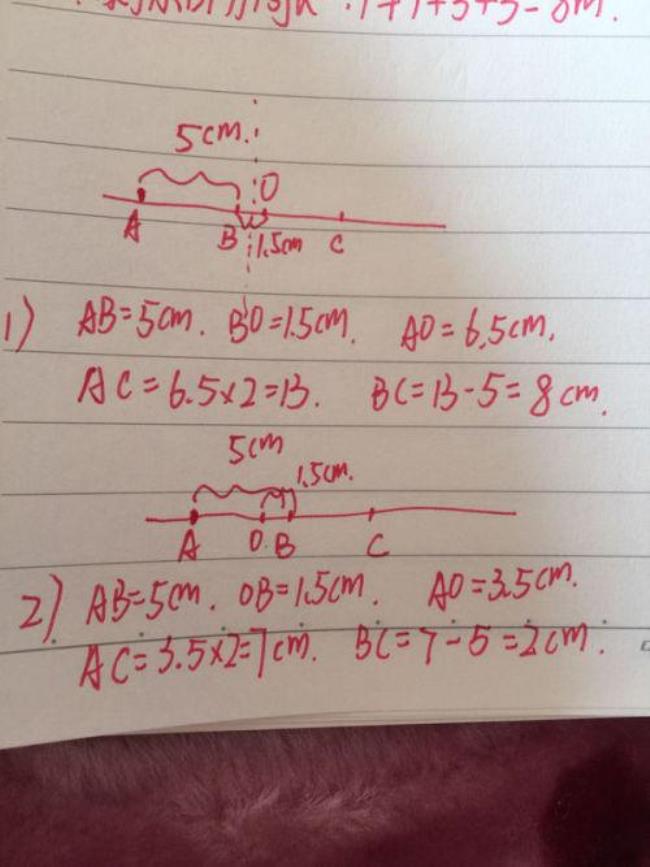 1+1+3+3=8m.
5cm.
O
A B 1.5cm C
1) AB=5cm. BO=1.5cm. AO=6.5cm.
AC=6.5×2=13. BC=13-5=8cm.
5cm
1.5cm.
A O B C
2) AB=5cm. OB=1.5cm. AO=3.5cm.
AC=3.5×2=7cm. BC=7-5=2cm.